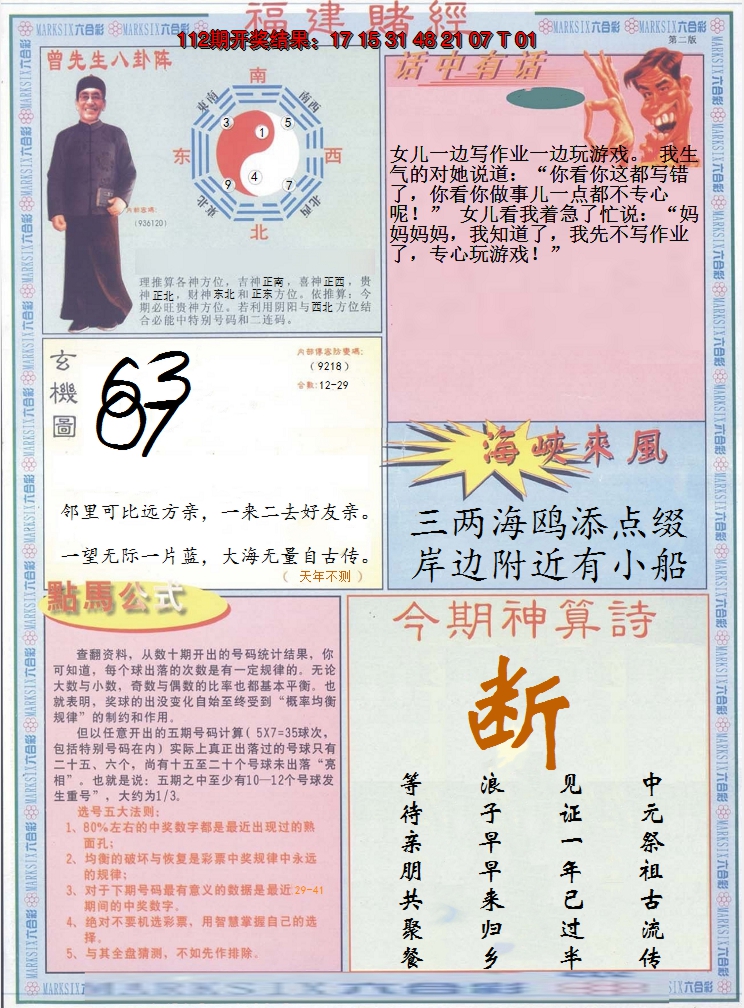 福建賭經
112期开奖结果：17 15 31 48 21 07 T 01
MARKSIX六合彩
第二版
曾先生八卦陈
南
東南
南西
3
1
5
东
西
9
4
7
東北
北西
北
内部密碼：
（936120）
理推算各神方位，吉神正南，喜神正西，贵
神正北，财神东北和正东方位。依推算：今
期必旺贵神方位。若利用阴阳与西北方位结
合必能中特别号码和二连码。
话中有话
女儿一边写作业一边玩游戏。 我生
气的对她说道：“你看你这都写错
了，你看你做事儿一点都不专心
呢！” 女儿看我着急了忙说：“妈
妈妈妈，我知道了，我先不写作业
了，专心玩游戏！”
玄機圖
63
87
（9218）
合数:12-29
邻里可比远方亲，一来二去好友亲。
一望无际一片蓝，大海无量自古传。
（ 天年不测 ）
海峽來風
三两海鸥添点缀
岸边附近有小船
點馬公式
查翻资料，从数十期开出的号码统计结果，你
可知道，每个球出落的次数是有一定规律的。无论
大数与小数，奇数与偶数的比率也都基本平衡。也
就表明，奖球的出没变化自始至终受到“概率均衡
规律”的制约和作用。
但以任意开出的五期号码计算( 5X7=35球次，
包括特别号码在内) 实际上真正出落过的号球只有
二十五、六个，尚有十五至二十个号球未出落“亮
相”。也就是说：五期之中至少有10—12个号球发
生重号”，大约为1/3。
选号五大法则：
1、80%左右的中奖数字都是最近出现过的熟
面孔；
2、均衡的破坏与恢复是彩票中奖规律中永远
的规律；
3、对于下期号码最有意义的数据是最近29-41
期间的中奖数字。
4、绝对不要机选彩票，用智慧掌握自己的选
择。
5、与其全盘猜测，不如先作排除。
今期神算詩
断
中元祭祖古流传
见证一年已过半
浪子早早来归乡
等待亲朋共聚餐